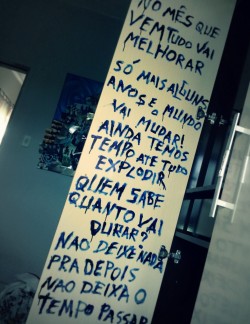 NO MÊS QUE
VEM TUDO VAI
MELHORAR
SÓ MAIS ALGUNS
ANOS E O MUNDO
VAI MUDAR!
AINDA TEMOS
TEMPO ATÉ TUDO
EXPLODIR
QUEM SABE
QUANTO VAI
DURAR?
NÃO DEIXE NADA
PRA DEPOIS
NÃO DEIXA O
TEMPO PASSAR